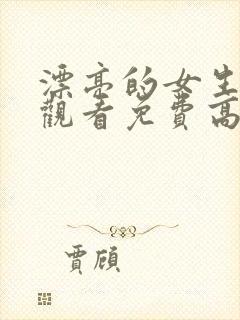 漂亮的女生
觀看免費高
賈頎